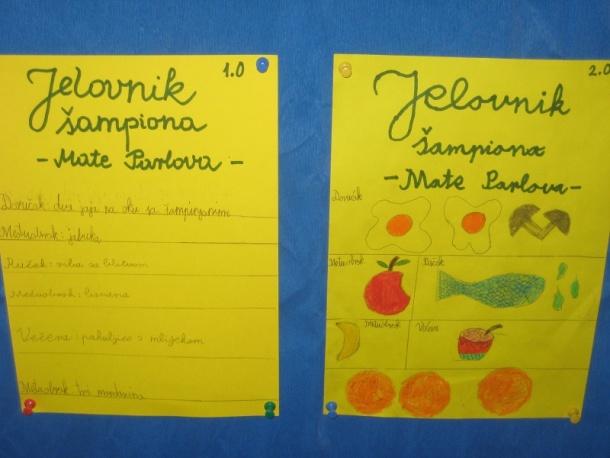 1.0
Jelovnik
šampiona
- Mate Parlova -
Doručak: dva jaja na oku sa šampinjonima
Međuobrok: jabuka
Ručak: riba sa blitvom
Međuobrok: banana
Večera: pahuljice s mlijekom
Međuobrok: tri mandarine
2.0
Jelovnik
šampiona
- Mate Parlova -
Doručak
Međuobrok
Ručak
Međuobrok
Večera